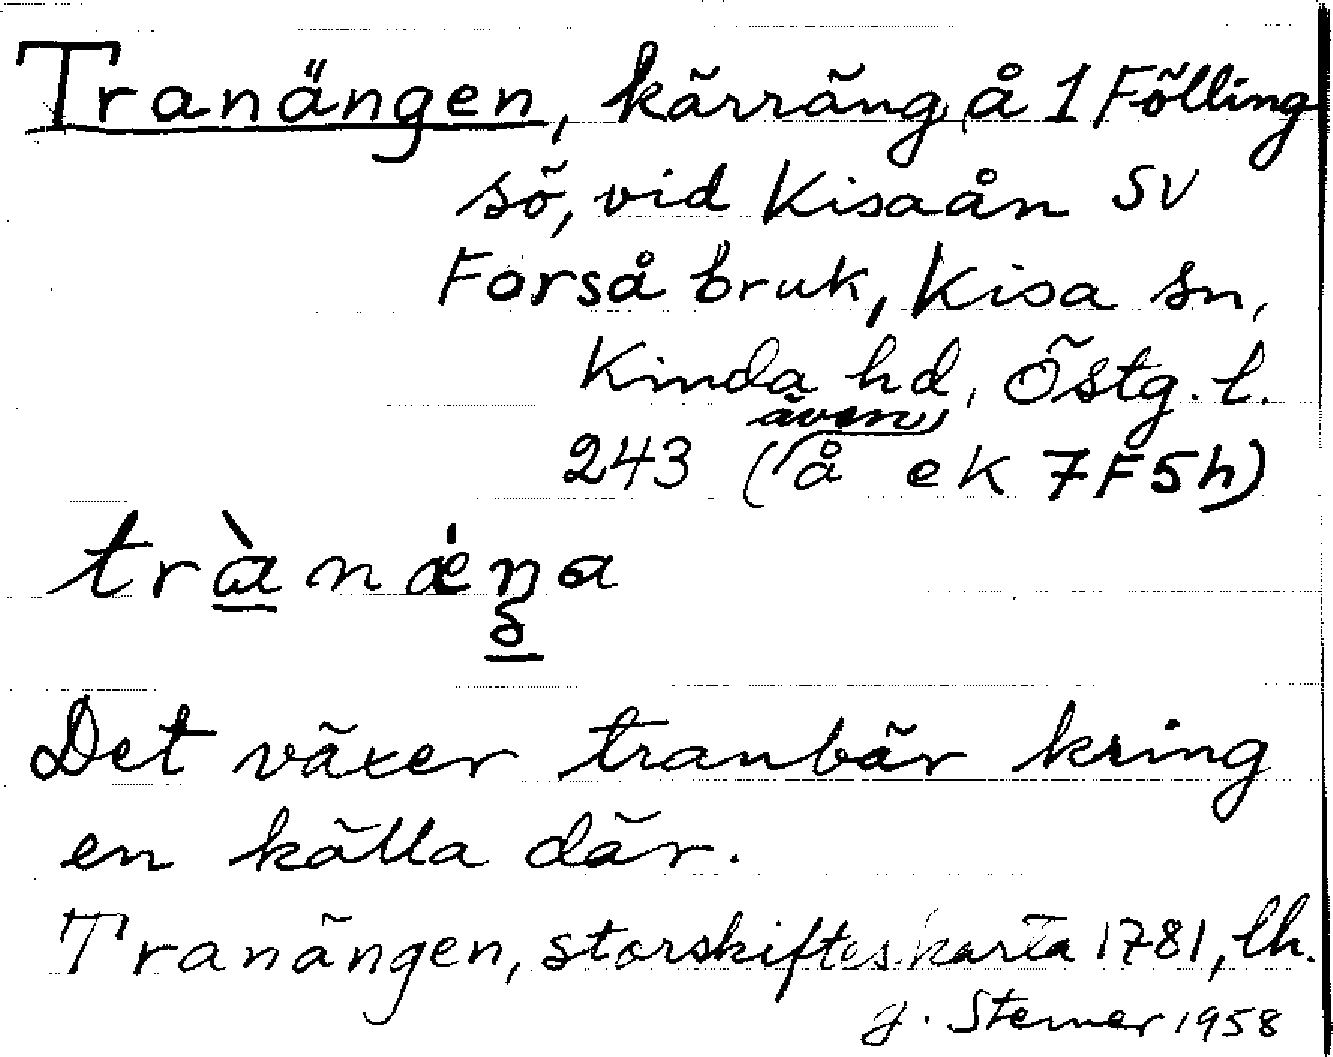 Tranängen, kärräng å 1 Fölling
sö, vid Kisaån SV
Forså bruk, Kisa sn,
Kinda hd, Östg. l.
även
243 (å ek 7F5h)
trànǽŋa
Det växer tranbär kring
en källa där.
Tranängen, storskifteskarta 1781, lh.
J. Sterner 1958